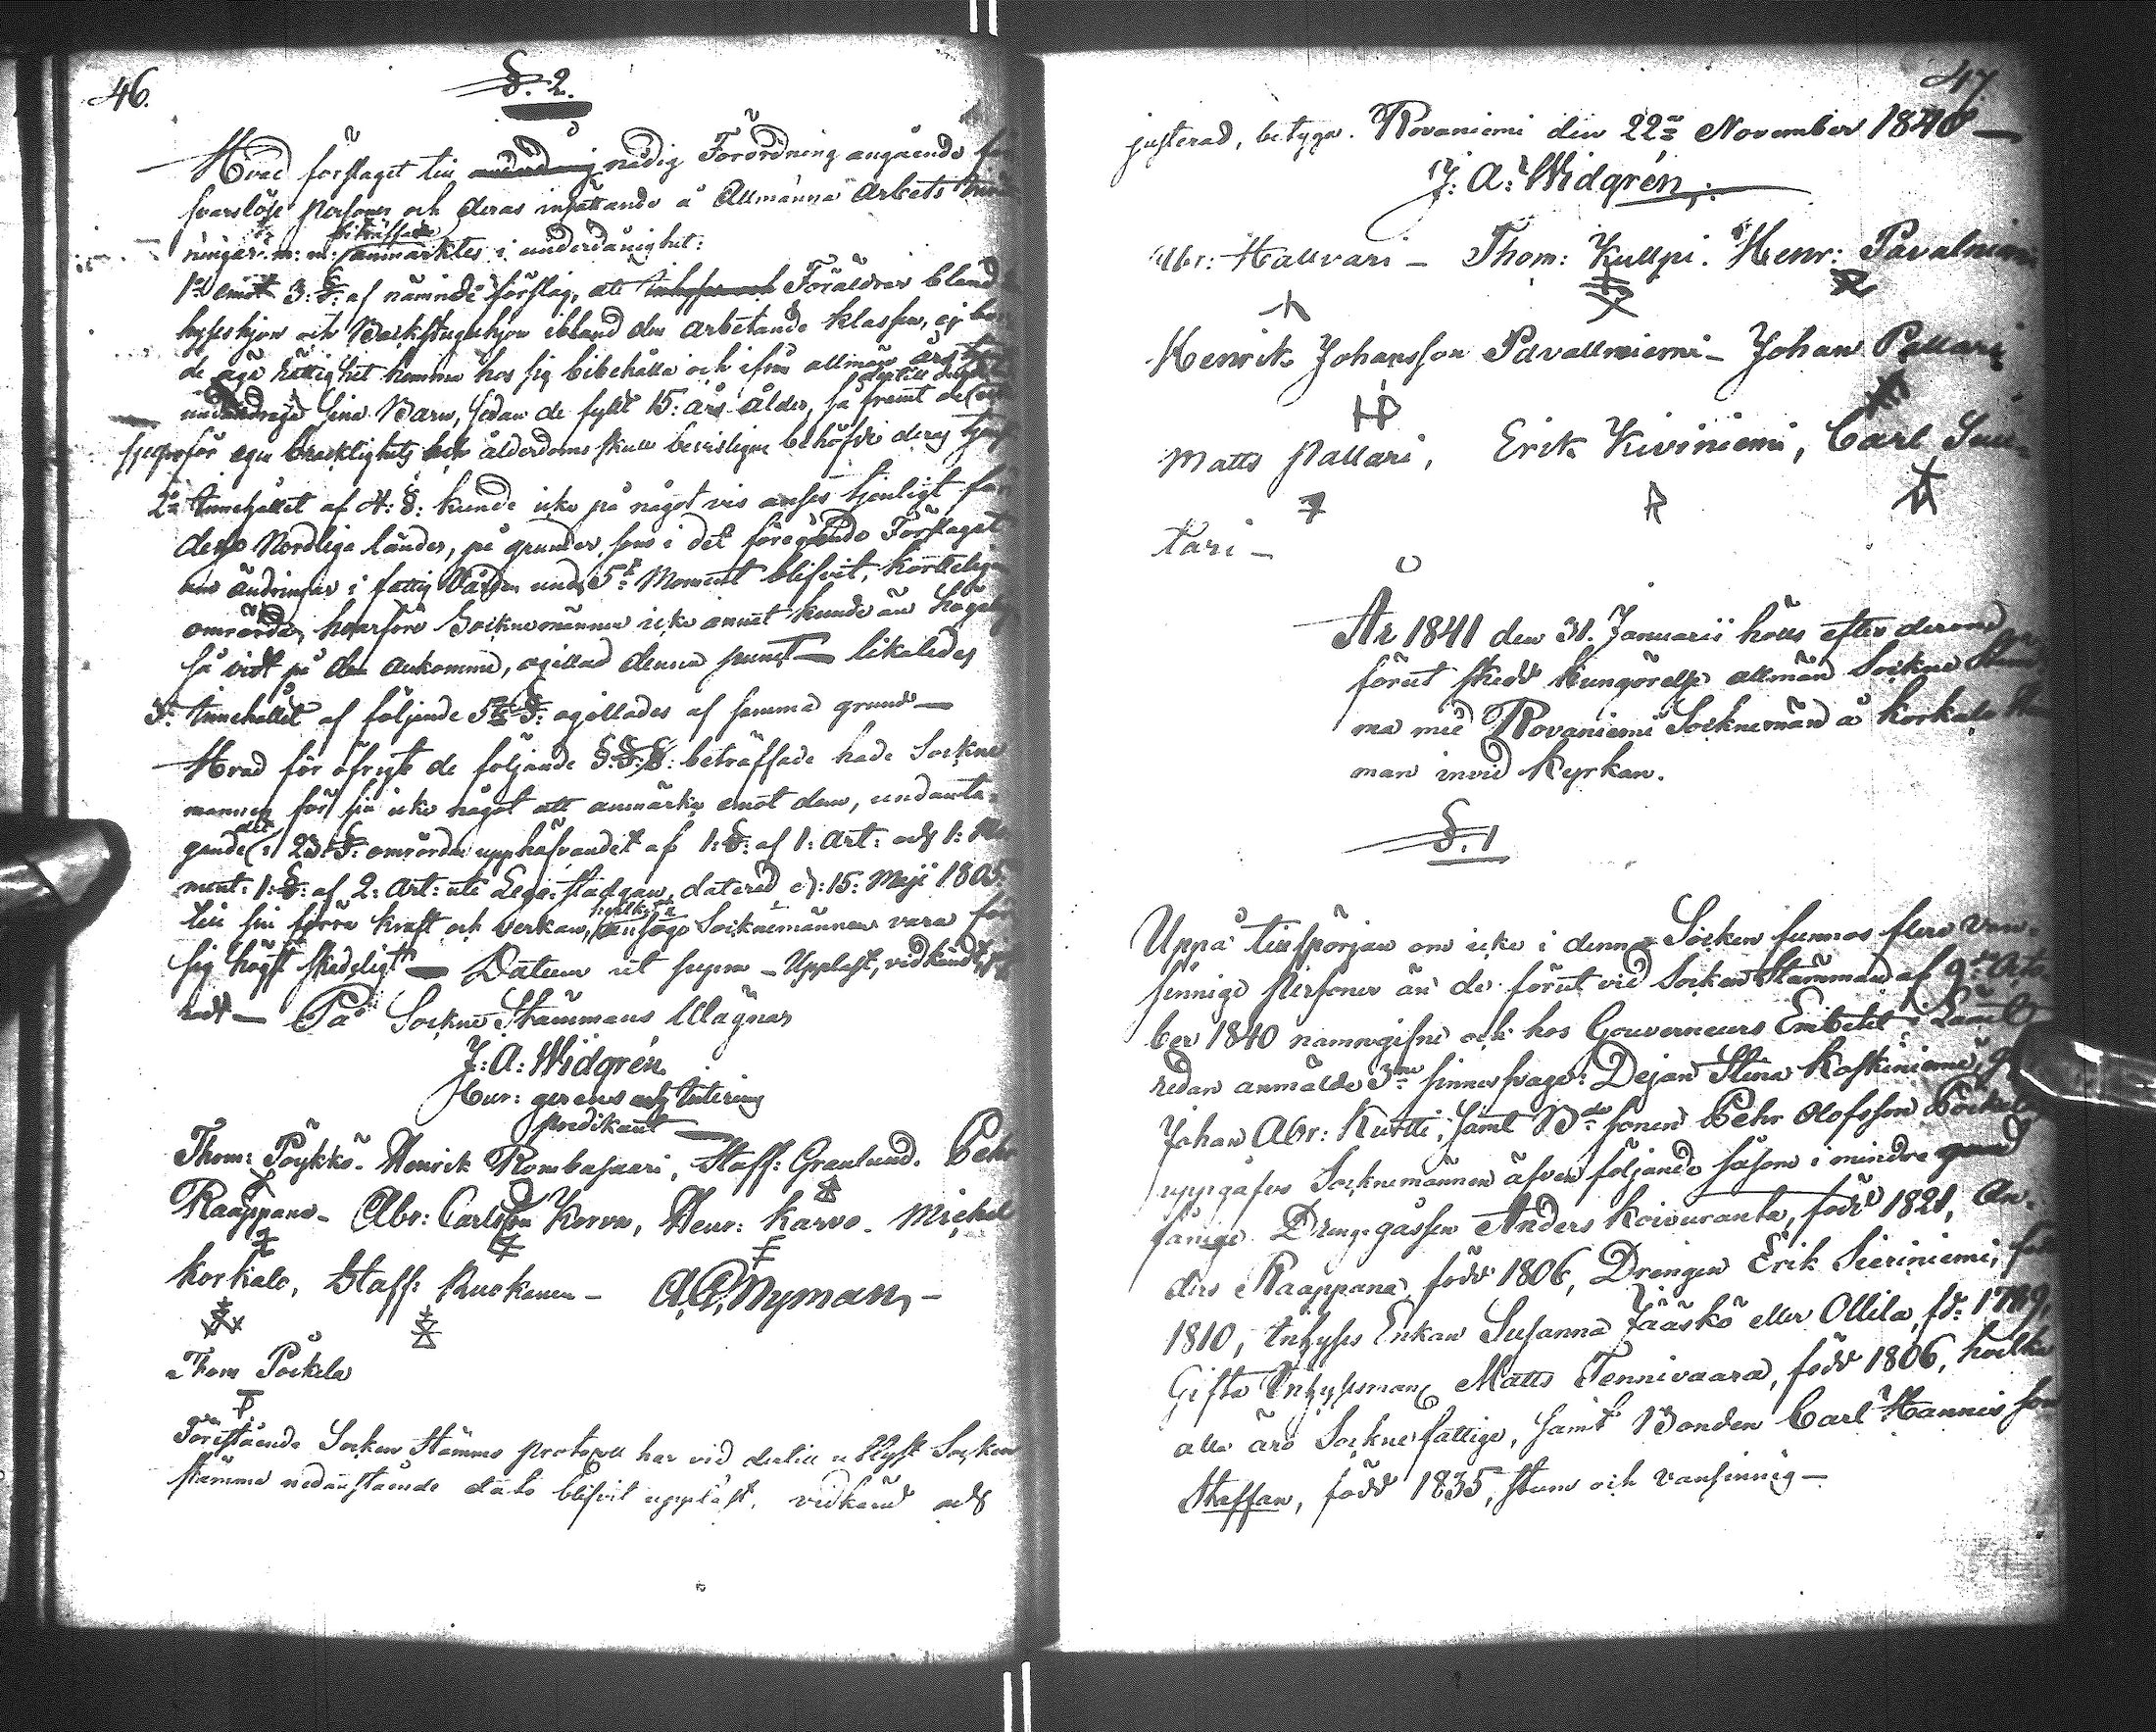 46.
§. 2.
Hvad förslaget till nådig Förordning angående
svarslöse personer och deras insättande å Allmänna Arbets
beträffade
ningar m: m: anmärktes i underdånighet:
1:o emot 3: §: af nämnde förslag, att Föräldrar bland
hysehjon och Backstuguhjon ibland den arbetande klassen, ej
de äga rättighet hemma hos sig bibehålla och ifrån allmän
dertill
undandraga sina Barn, sedan de fyllt 15: års ålder, så framt de
för egen bräcklighets och ålderdoms skull bevisligen behöfde deras
2:o Innehållet af 4: §: kunde icke på något vis anses tjenligt för
dessa Nordliga länder, på grunder som i det föregående Förslaget
om ändringar i fattig Vården under 5:te Moment blifvit, korteligen
omrörde, hvarföre Socknemännen icke annat kunde än
så vidt på dem ankomme, ogillad denna punct — likaledes
3:o Innehållet af följande 5:te §: ogillades af samma grund —
Hvad för öfrigt de följande §:§:§: beträffade hade Sockne
männen för sin icke något att anmärka emot dem, undanta-
det
gande i 23 §: omrörda upphäfvandet af 1: §: af 1: Art: och 1: Mo
ment: 1: §: af 2: Art: uti Lego-stadgan, daterad d: 15: Maji 1805.
hvilket
till sin förra kraft och verkan, ansågo Socknemännen vara för
sig högst skadeligt — Datum ut supra — Uppläst, vidkändt,
radt — På Sockne Stämmans Wägnar
J: A: Widgrén
Cur: gerens och tutering
predikant —
Thom: Pöykkö. Henrik Rombasaari, Staff: Granlund. Pehr
Raappana — Abr: Carlsson Korva, Henr: Karvo. Michel
Korkalo, Staff: Ruokanen — A. A. Nyman, —
Thom Pöckela
Förestående Socken Stämmo protocoll har vid dertill utlyst Socken
stämma nedanstående dato blifvit uppläst, vidkänd och
47
justerad, betyga. Rovaniemi den 22:a November 1840 —
J: A: Widgrén.
Abr: Hallvari — Thom: Kullpi. Henr: Pavalniemi
Henrik Johansson Pavallniemi — Johan Pallari
Matts Pallari, Erik Kiviniemi, Carl Suu-
tari —
År 1841 den 31. Januarii hölls efter derom
förut skedd kungörelse allmän Sockne Stäm
ma med Rovaniemi Socknemän å Korkalo
man invid Kyrkan.
§. 1
Uppå tillspörjan om icke i denna Socken funnos flere van-
sinnige personer än de förut vid Socken Stämman af 9:de Octo-
ber 1840 namngifne och hos Gouverneurs Embetet i Länet
redan anmälde 3:ne sinnessvage: Dejan Stina Koskiniemi,
Johan Abr: Kurtti, samt B:de sonen Pehr Olofsson Pöckela
uppgåfvo Socknemännen äfven följande såsom i mindre grad
fånige. Drengegåssen Anders Koivuranta, född 1821, An-
ders Raappana, född 1806, Drengen Erik Sieriniemi, född
1810, Inhyses Enkan Susanna Jääskö eller Ollila, fd: 1789,
Gifta Inhysesman Matts Tennivaara, född 1806, hvilka
alla äro Socknefattige, samt Bonden Carl Hannis son
Staffan, född 1835, stum och vansinnig —